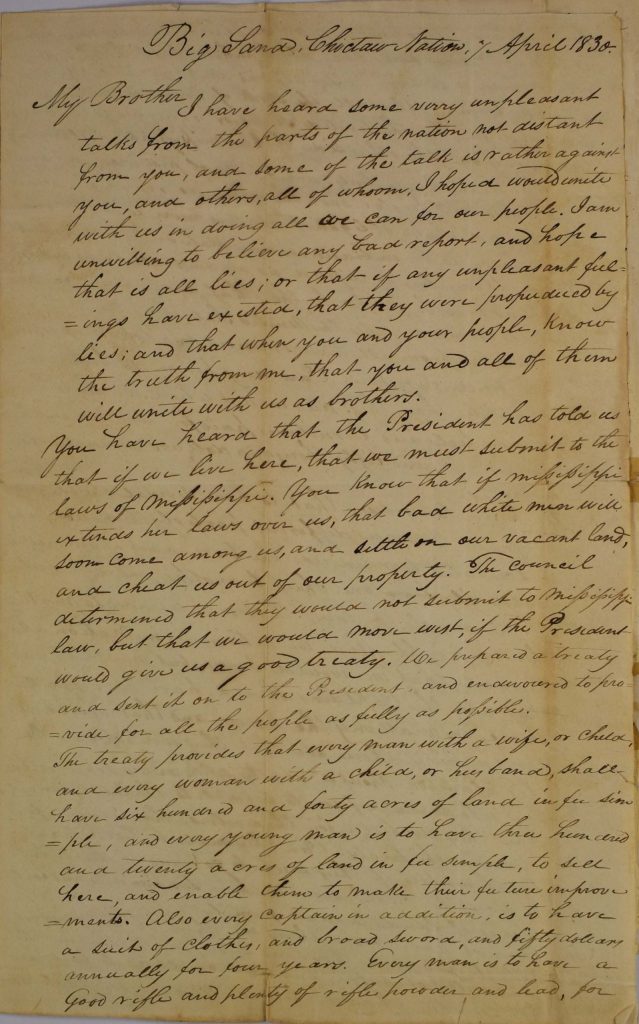 Big Sand, Choctaw Nation, 7 April 1830.
My Brother I have heard some verry unpleasant
talks from the parts of the nation not distant
from you, and some of the talk is rather against
you, and others, all of whoom, I hoped would unite
with us in doing all we can for our people. I am
unwilling to believe any bad report, and hope
that is all lies; or that if any unpleasant ful=
=ings have existed, that they were propuduced by
lies; and that when you and your people, know
the truth from me, that you and all of them
will unite with us as brothers.
You have heard that the President has told us
that if we live here, that we must submit to the
laws of Mississippi. You know that if mississippi
extends her laws over us, that bad white men will
soom come among us, and settle on our vacant land,
and cheat us out of our property. The council
determined that they would not submit to Mississippi
law, but that we would move west, if the President
would give us a good treaty. We prepared a treaty
and sent it on to the President, and endevoured to pro
=vide for all the people as fully as possibles.
The treaty provides that every man with a wife, or child,
and every woman with a child, or husband, shall
have six hundred and forty acres of land in fee sim
=ple, and every young man is to have three hundred
and twenty acres of land in fee simple, to sell
here, and enable them to make their future improve
=ments. Also every captain in addition, is to have
a suit of clothes, and broad sword, and fifty dollars
annually for four years. Every man is to have a
Good rifle and plenty of rifle powder and lead, for